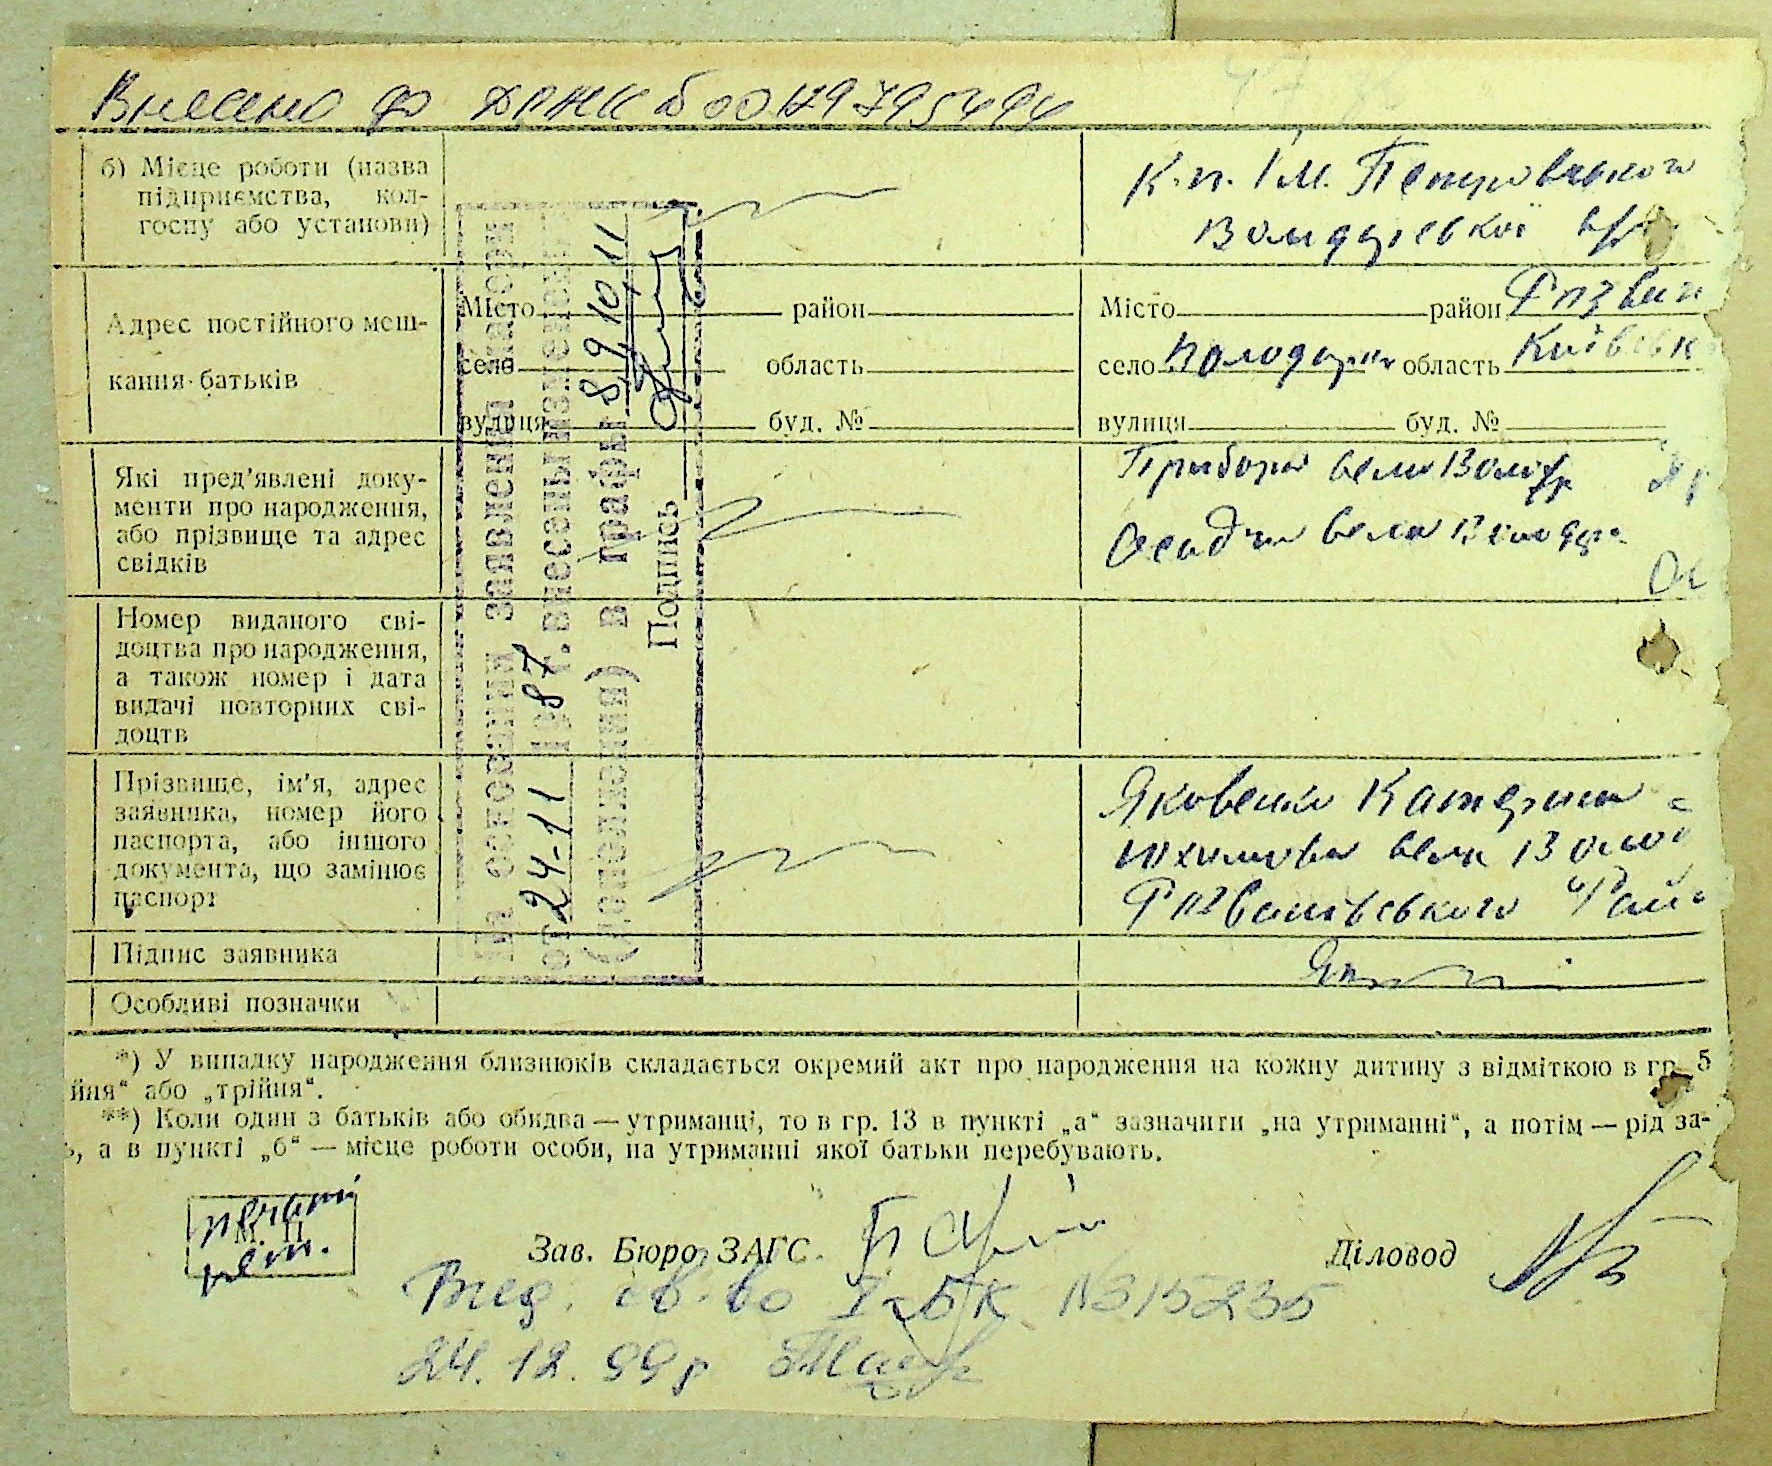 Внесено до ДРАЦС 00179795494
б) Місце роботи (назва
підприємства, кол-
госпу або установи)
К.п. Ім. Петровського
Володарської с/р
Адрес постійного меш-
кання батьків
Місто район
село область
вулиця буд. №
Місто район Розваж
село Володарка область Київськ
вулиця буд. №
Які пред'явлені доку-
менти про народження,
або прізвище та адрес
свідків
село Волод
Осадчи село Володар
Ос
Номер виданого сві-
доцтва про народження,
а також номер і дата
видачі повторних сві-
доцтв
Прізвище, ім'я, адрес
заявника, номер його
паспорта, або іншого
документа, що замінює
паспорт
Яковенко Катерина
Юхимовна село Волод
Розважівського Рай
Підпис заявника
Особливі позначки
На основании заявления
от 24-11 1987 г. внесены изменения
(дополнения) в графы 8,9,10,11
Подпись
*) У випадку народження близнюків складається окремий акт про народження на кожну дитину з відміткою в гр. 5
йня“ або „трійня“.
**) Коли один з батьків або обидва — утриманці, то в гр. 13 в пункті „а“ зазначити „на утриманні“, а потім — рід за-
, а в пункті „б“ — місце роботи особи, на утриманні якої батьки перебувають.
М. П.
печать
Зав. Бюро ЗАГС.
Діловод
св-во І-БК N315235
24.12.99р